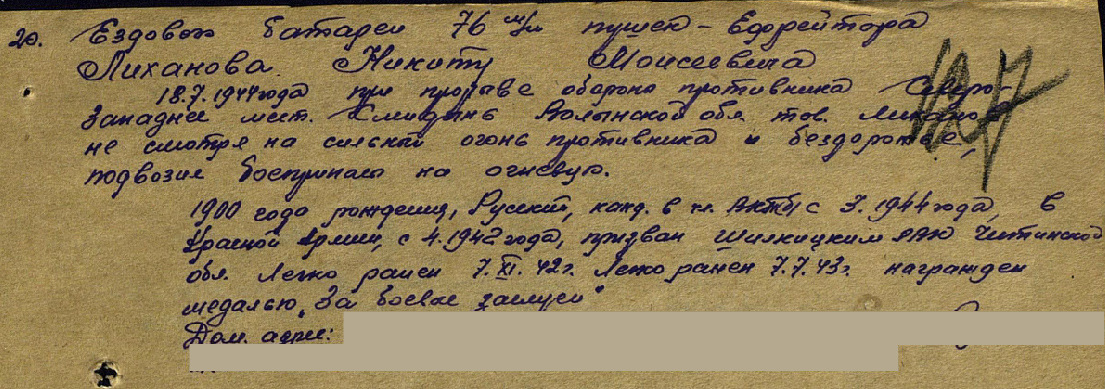 20. Ездовой батареи 76 м/м пушек - Ефрейтора
Лиханова Никиту Моисеевича
18.7.1944 года при прорыве обороны противника Северо-
Западнее мест. Смидынь Волынской обл. тов. Лиханов
не смотря на сильный огонь противника и бездорожье,
подвозил боеприпасы на огневую.
1900 года рождения, Русский, канд. в чл. ВКП(б) с 3.1944 года, в
Красной Армии, с 4.1942 года, призван Шилкицким РВК Читинской
обл. Легко ранен 7.XI.42г. Легко ранен 7.7.43г. награжден
медалью „За боевые заслуги"
Дом. адрес: